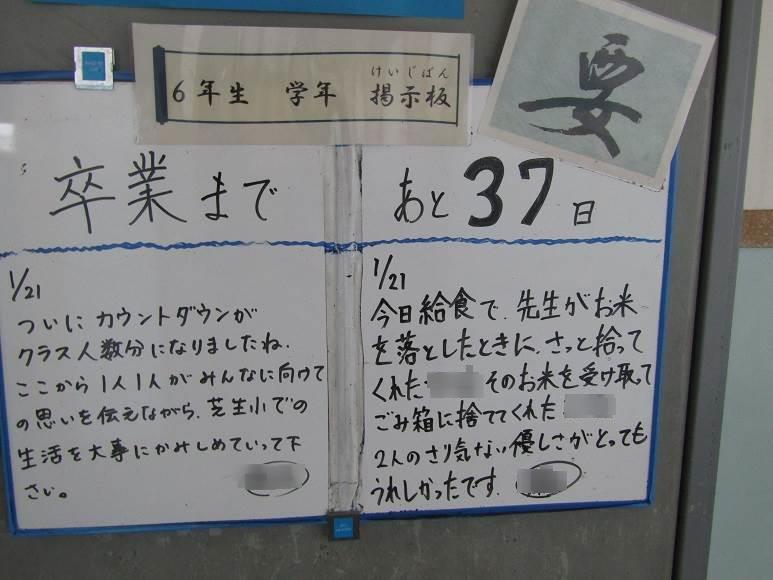 けいじばん
6年生 学年 掲示板
要
卒業まで
あと37日
1/21
ついにカウントダウンが
クラス人数分になりましたね.
ここから1人1人がみんなに向けて
の思いを伝えながら、芝生小での
生活を大事にかみしめていって下
さい。
1/21
今日給食で、先生がお米
を落としたときに、さっと拾って
くれた
そのお米を受け取って
ごみ箱に捨ててくれた
2人のさり気ない優しさがとっても
うれしかったです.